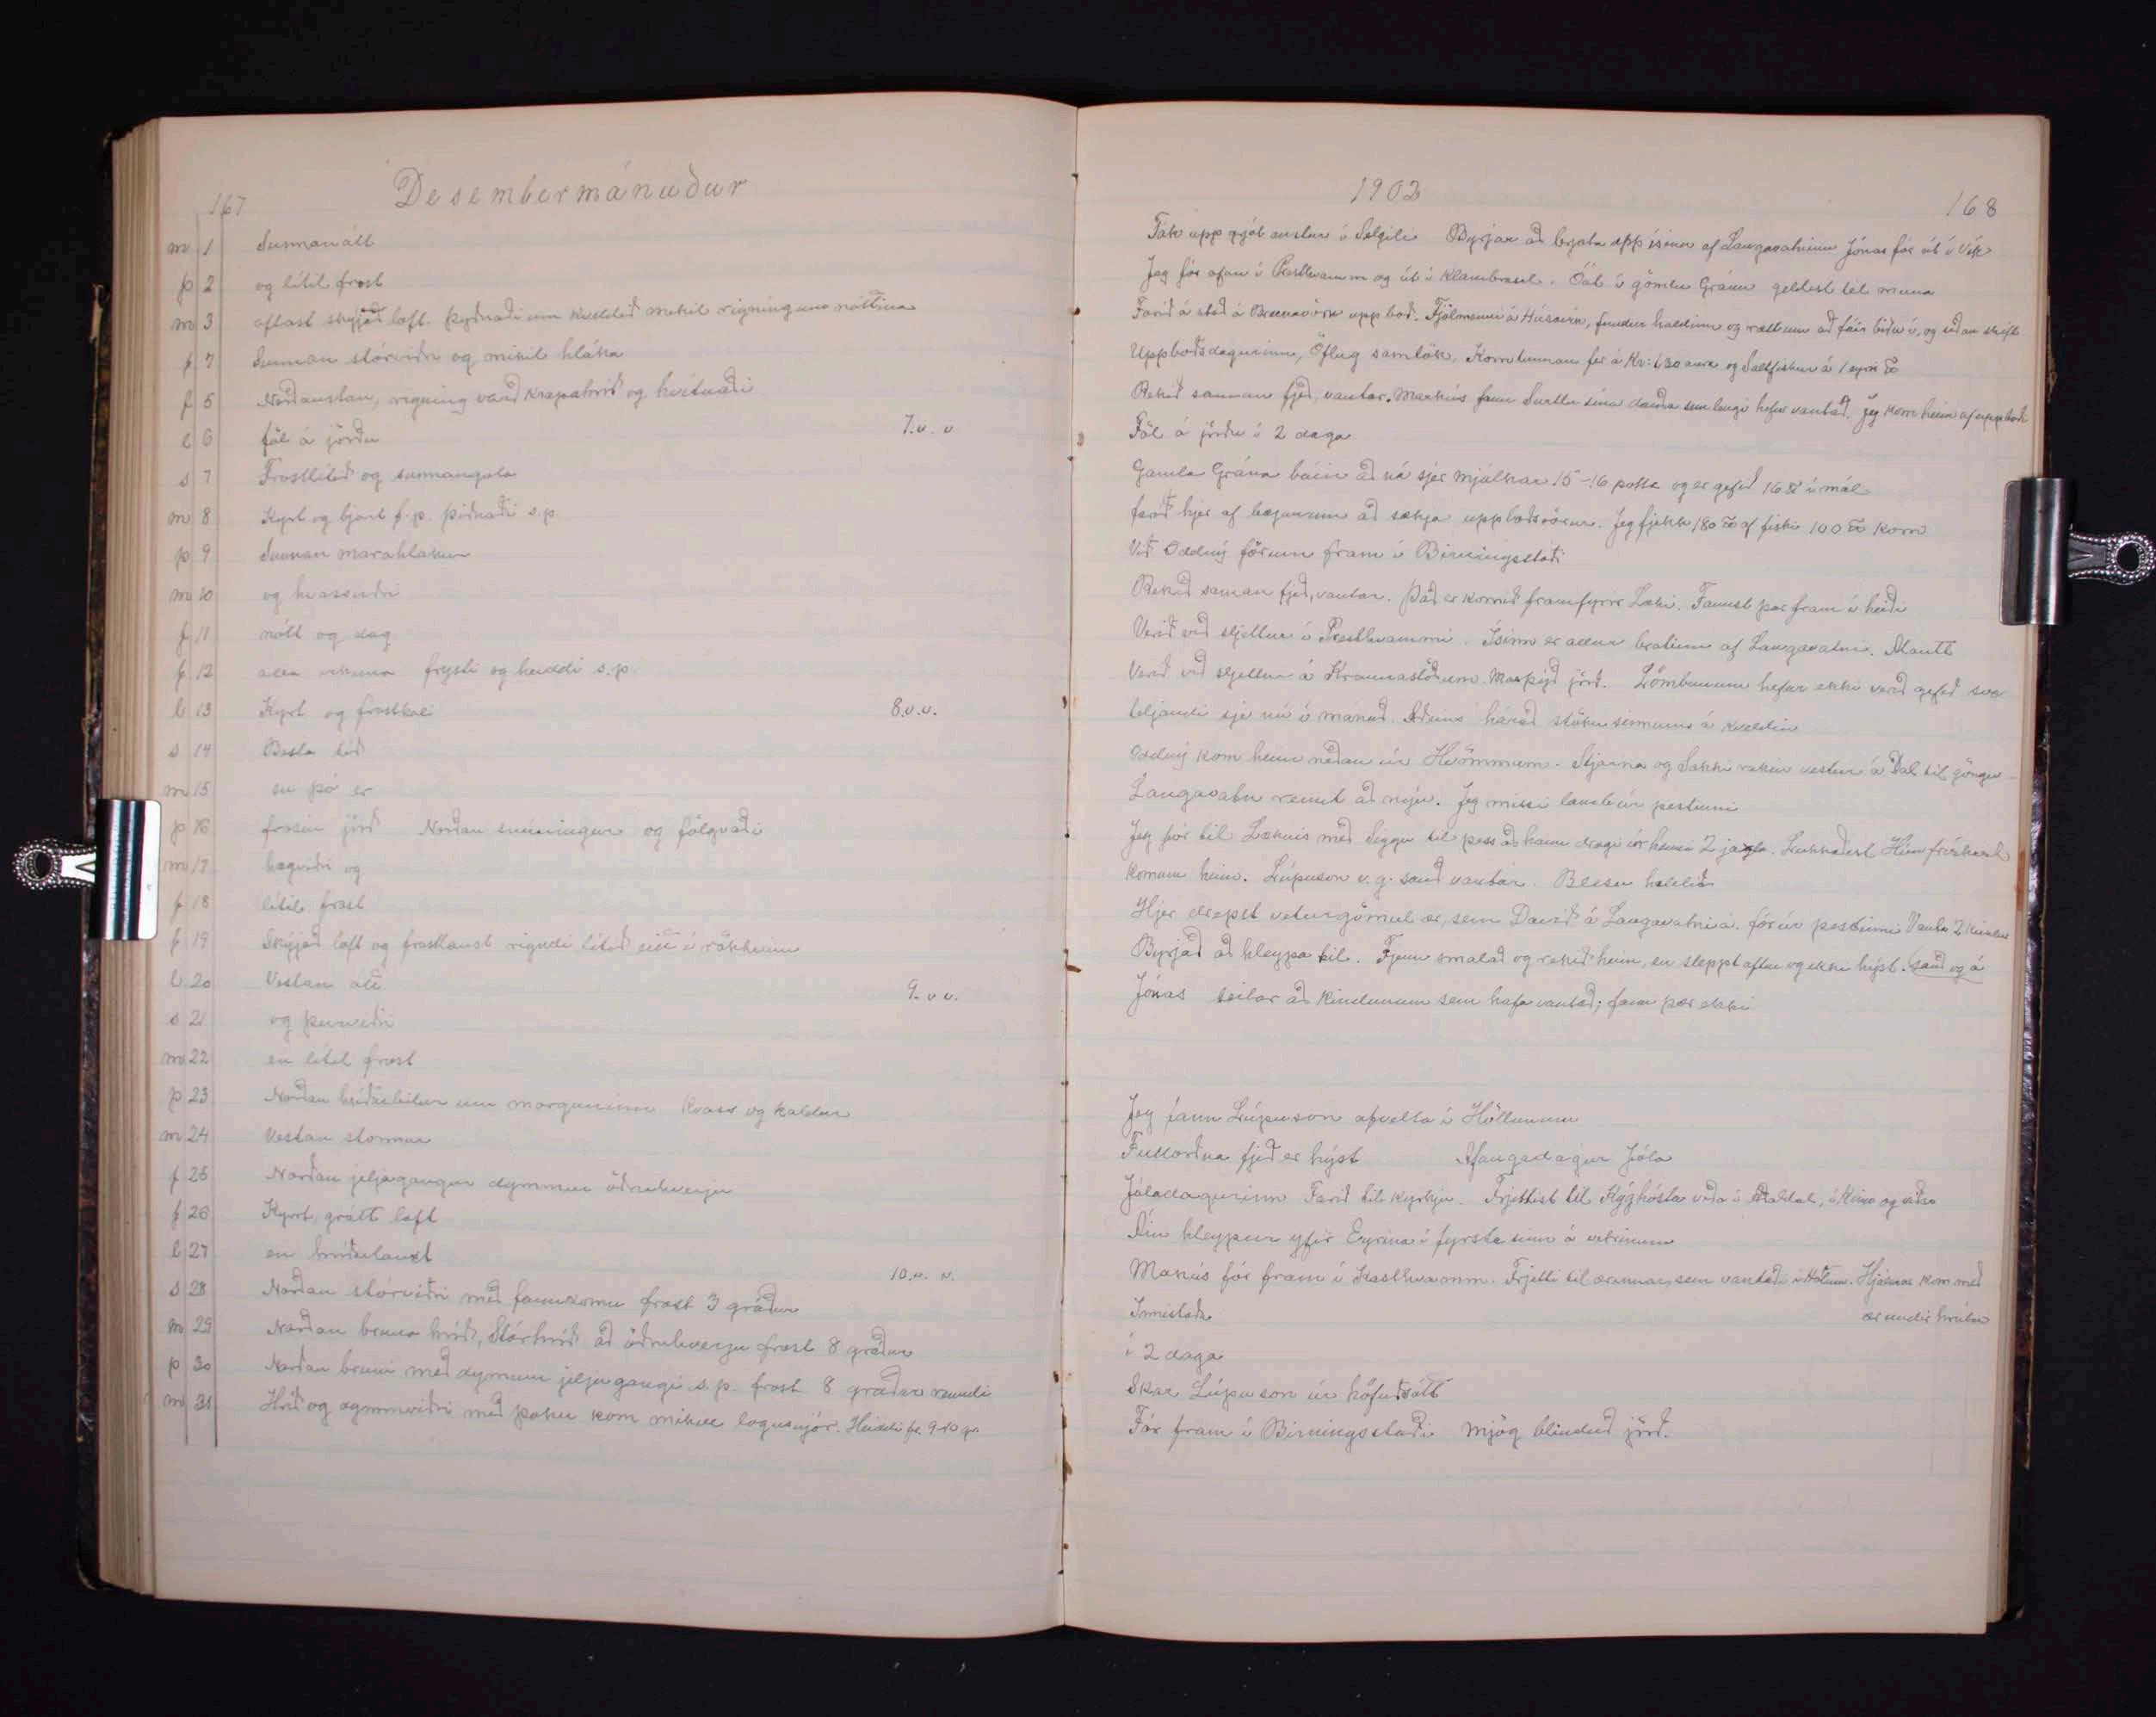 167
Desembermánuður
m 1 Sunnanátt
þ 2 og lítil frost
m 3 oftast skyjað loft. þyðnaði um kveldið mikil rigning um nóttina
f 4 Sunnan stórviðri og mikil hláka
f 5 Norðaustan, rigning varð krapahríð og hvítnaði
l 6 föl á jörðu 7.v.v
s 7 Frostlítið og sunnangola
m 8 Kyrt og bjart f.p. þiðnaði s.p.
þ 9 Sunnan marahlákur
m 10 og hvassviðri
f 11 nótt og dag
f 12 alla vikuna frysti og heiddi s.p.
l 13 Kyrt og frostkali 8.v.v.
s 14 Besta tíð
m 15 en þó er
þ 16 frosin jörð Norðan snúningur og fölgvaði
m 17 hægviðri og
f 18 lítil frost
f 19 Skýjað loft og frostlaust rigndi lítið eitt í rökkrinu
l 20 Vestan átt 9.v v.
s 21 og þurviðri
m 22 en lítil frost
þ 23 Norðan hríðarbilur um morguninn hvass og kaldur
m 24 Vestan stormur
f 25 Norðan jeljagangur dymmur öðruhverju
f 26 Kyrt, grátt loft
l 27 en hríðarlaust 10.v. v.
s 28 Norðan stórviðri með fannkomu frost 3 gráður
m 29 Norðan bruna hríð, Stórhríð að öðruhverju frost 8 gráður
þ 30 Norðan bruni með dymum jeljagangi s.p. frost 8 gráður renndi
m 31 Hríð og dymmviðri með þoku kom mikill logusnjór. Heiddi fr. 9-10 gr.
1902
168
Tók upp grjót austur í Selgili Byrjar að brjóta upp ísinn af Langavatninu Jónas fór út í Vík
Jeg fór ofan í Presthvamm og út í Klambrasel. Óát í gömlu Gránu geldist til muna
Farið á stað á Brunavöru uppboð. Fjölmenni á Húsavík, fundur haldinn og rætt um að fáir bíðu í, og síðan skift
Uppboðsdagurinn, Öflug samtök. Korntunnan fer á Kr: 1,30 aura og Saltfiskur á 1 eyri ℔
Rekið saman fjeð, vantar. Markús fann Surtlu sína dauða sem lengi hefur vantað. Jeg kom heim af uppboði
Föl á jörðu í 2 daga
Gamla Grána búin að ná sjer mjólkar 15-16 potta og er gefið 16 ℔ í mál
farið hjer af bæjunum að sækja uppboðsvörur. Jeg fjekk 180 ℔ af fiski 100 ℔ korn
Við Oddný förum fram í Birningsstaði
Rekið saman fjeð, vantar. Það er komið fram fyrir Læki. Fannst þar fram í heiði
Verið við sljettur í Presthvammi. Ísinn er allur brotinn af Langavatni. Mautt
Verið við sljettur á Kraunastöðum. Marþýð jörð. Lömbunum hefur ekki verið gefið svo
teljandi sje nú í mánuð. Aðeins hárað stöku sinnum á kveldin
Oddný kom heim neðan úr Hvömmum. Stjarna og Sokki rekin vestur á Dal til göngu
Langavatn remt að nýju. Jeg missi lamb úr pestinni
Jeg fór til Læknis með Siggu til þess að hann dragi úr henni 2 jaxla. Lukkaðist Hún frískast
komum heim. Lúpuson v.g. sauð vantar. Blesu haldið
Hjer drepst veturgömul ær, sem Davíð á Langavatni á. fór úr pestinni Vanta 2 kindur
Byrjað að hleypa til. Fjenu smalað og rekið heim, en sleppt aftur og ekki hýst. sauð og á
Jónas leitar að kindunum sem hafa vantað; fann þær ekki
Jeg fann Lúpuson afvelta í Höllunum
Fullorðna fjeð er hýst Afangadagur Jóla
Jóladagurinn Farið til kyrkju. Frjettist til Kýghósta víða í Aðaldal, í Kinn og víðar
Áin hleypur yfir Eyrina í fyrsta sinn á vetrinum
Makús fór fram í Kasthvamm. Frjetti til ærinnar, sem vantaði í Hólum. Hjálmar kom með
Innistaða ær undir hrúta
í 2 daga
Skar Lúpuson úr höfuðsótt
Fór fram í Birningsstaði mjög blinduð jörð.